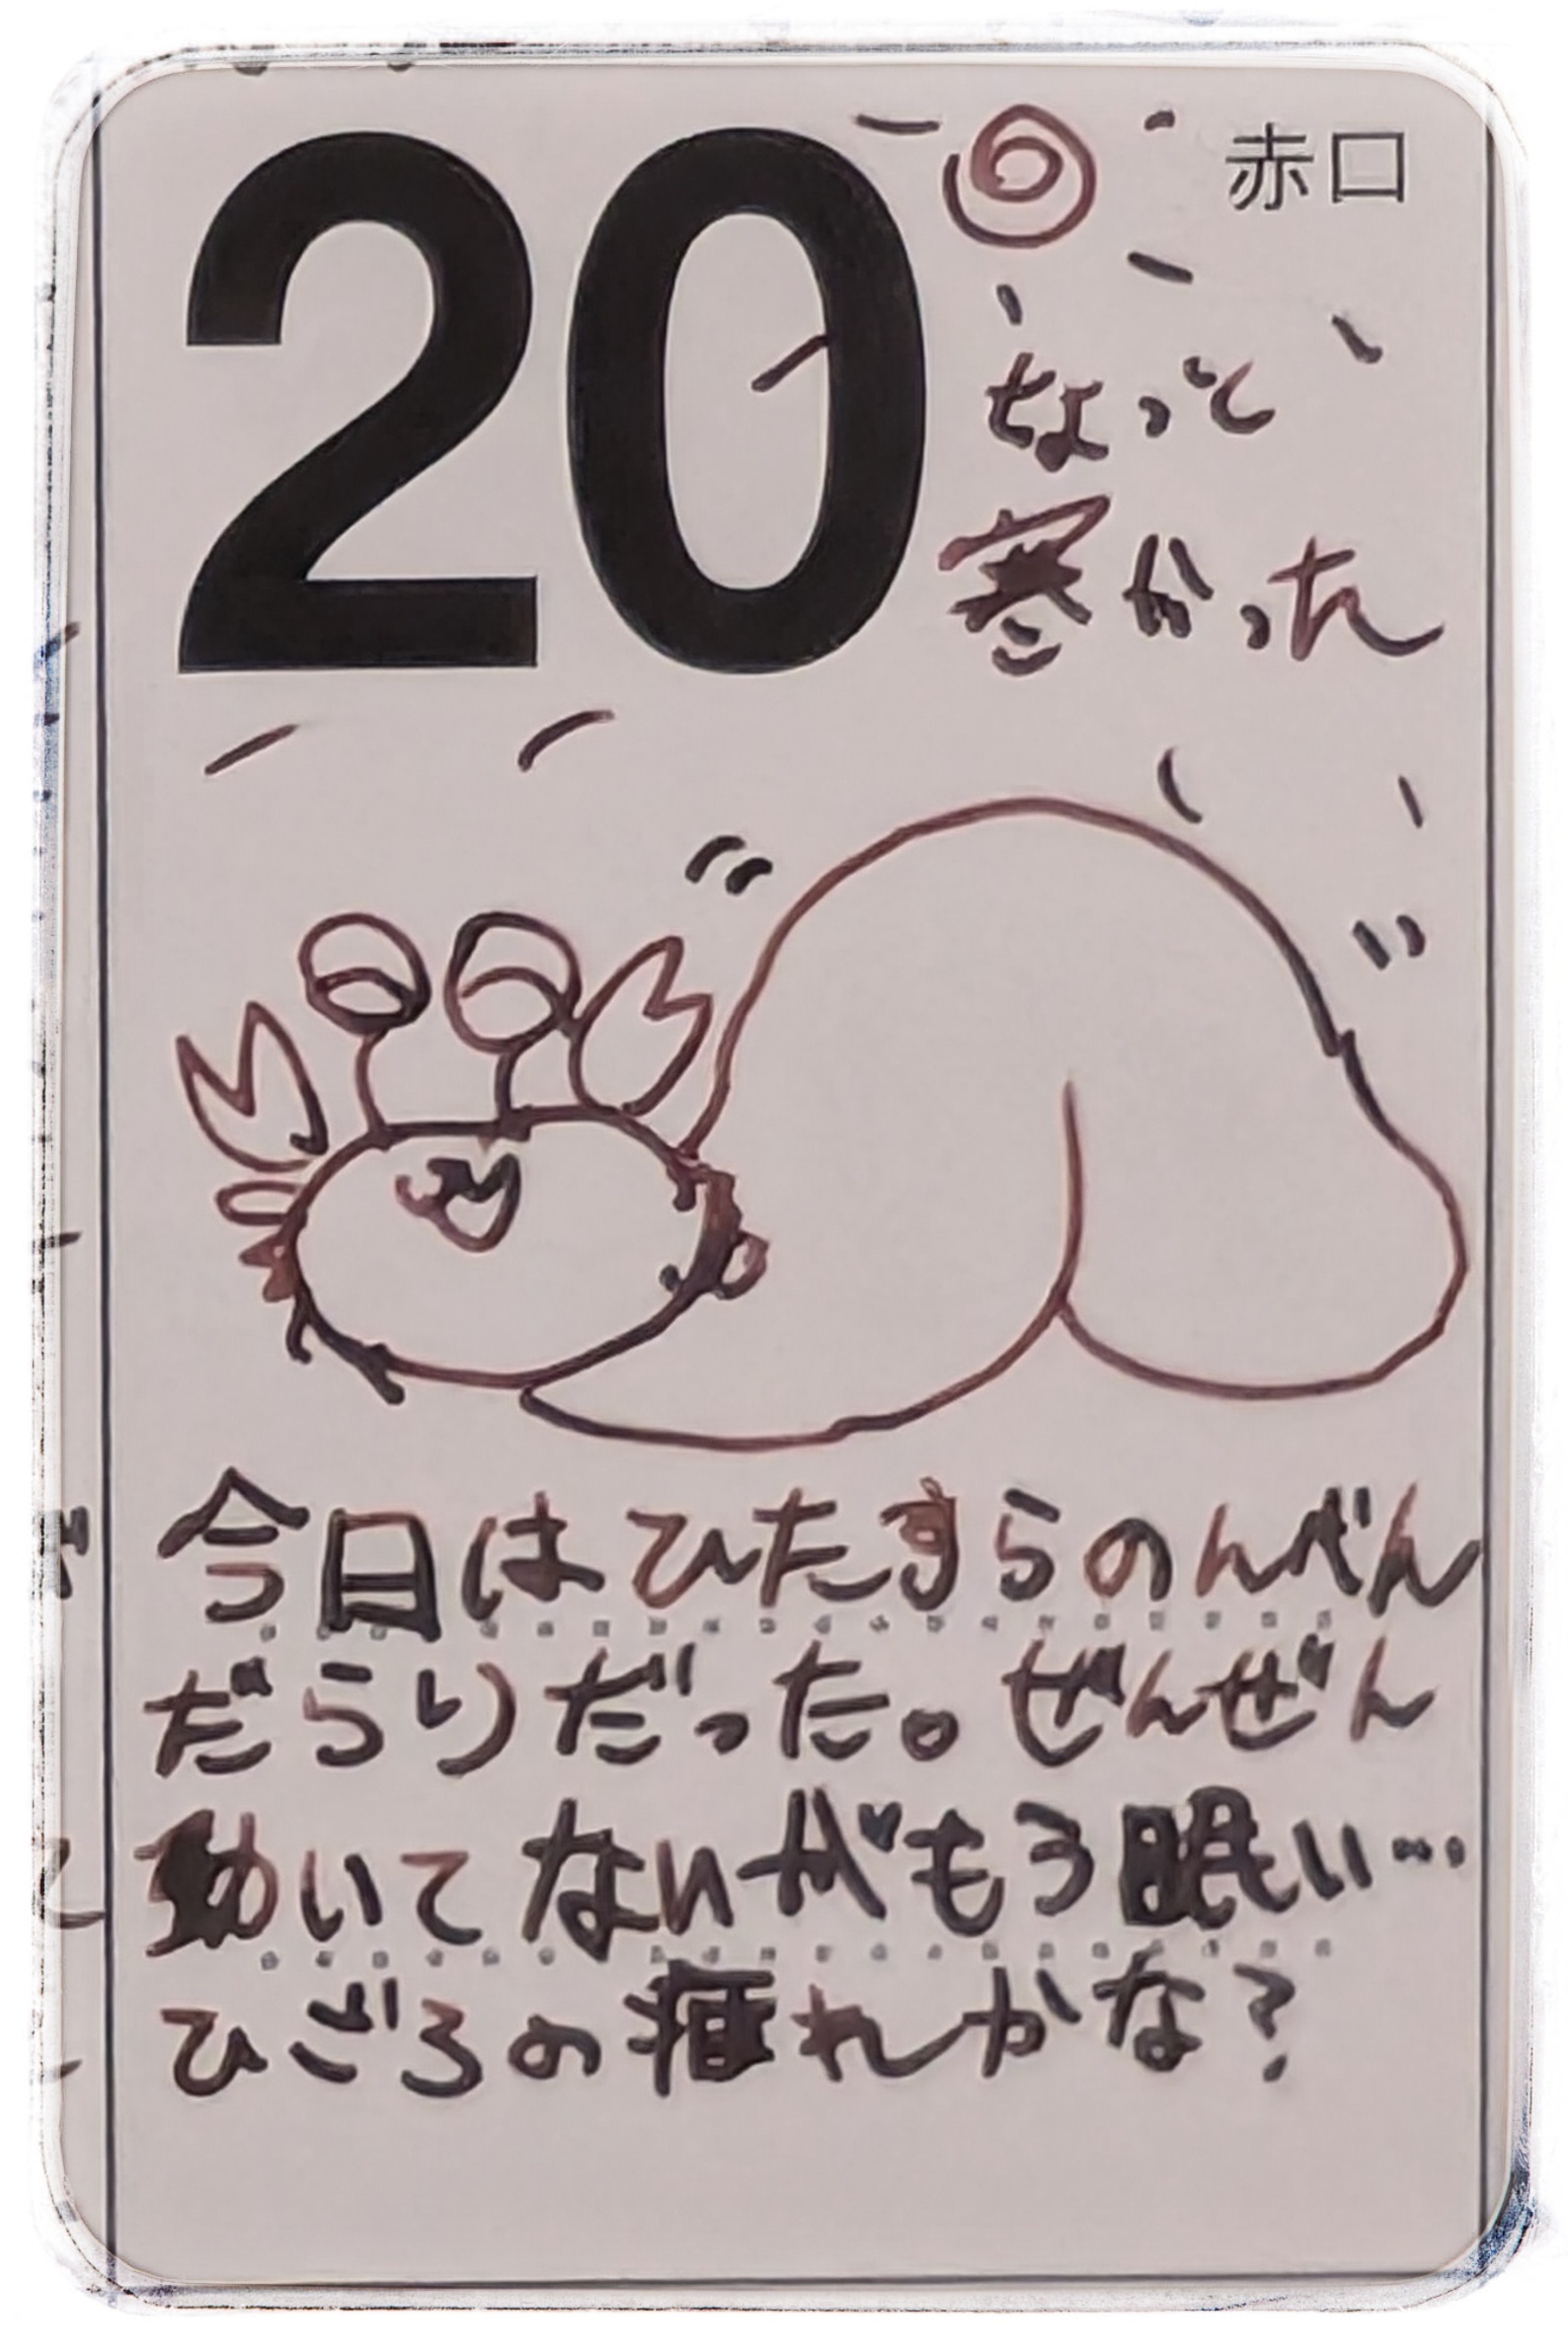 20
赤口
ちょっと
寒かった
今日はひたすらのんべん
だらりだった。ぜんぜん
動いてないがもう眠い…
ひごろの疲れかな?